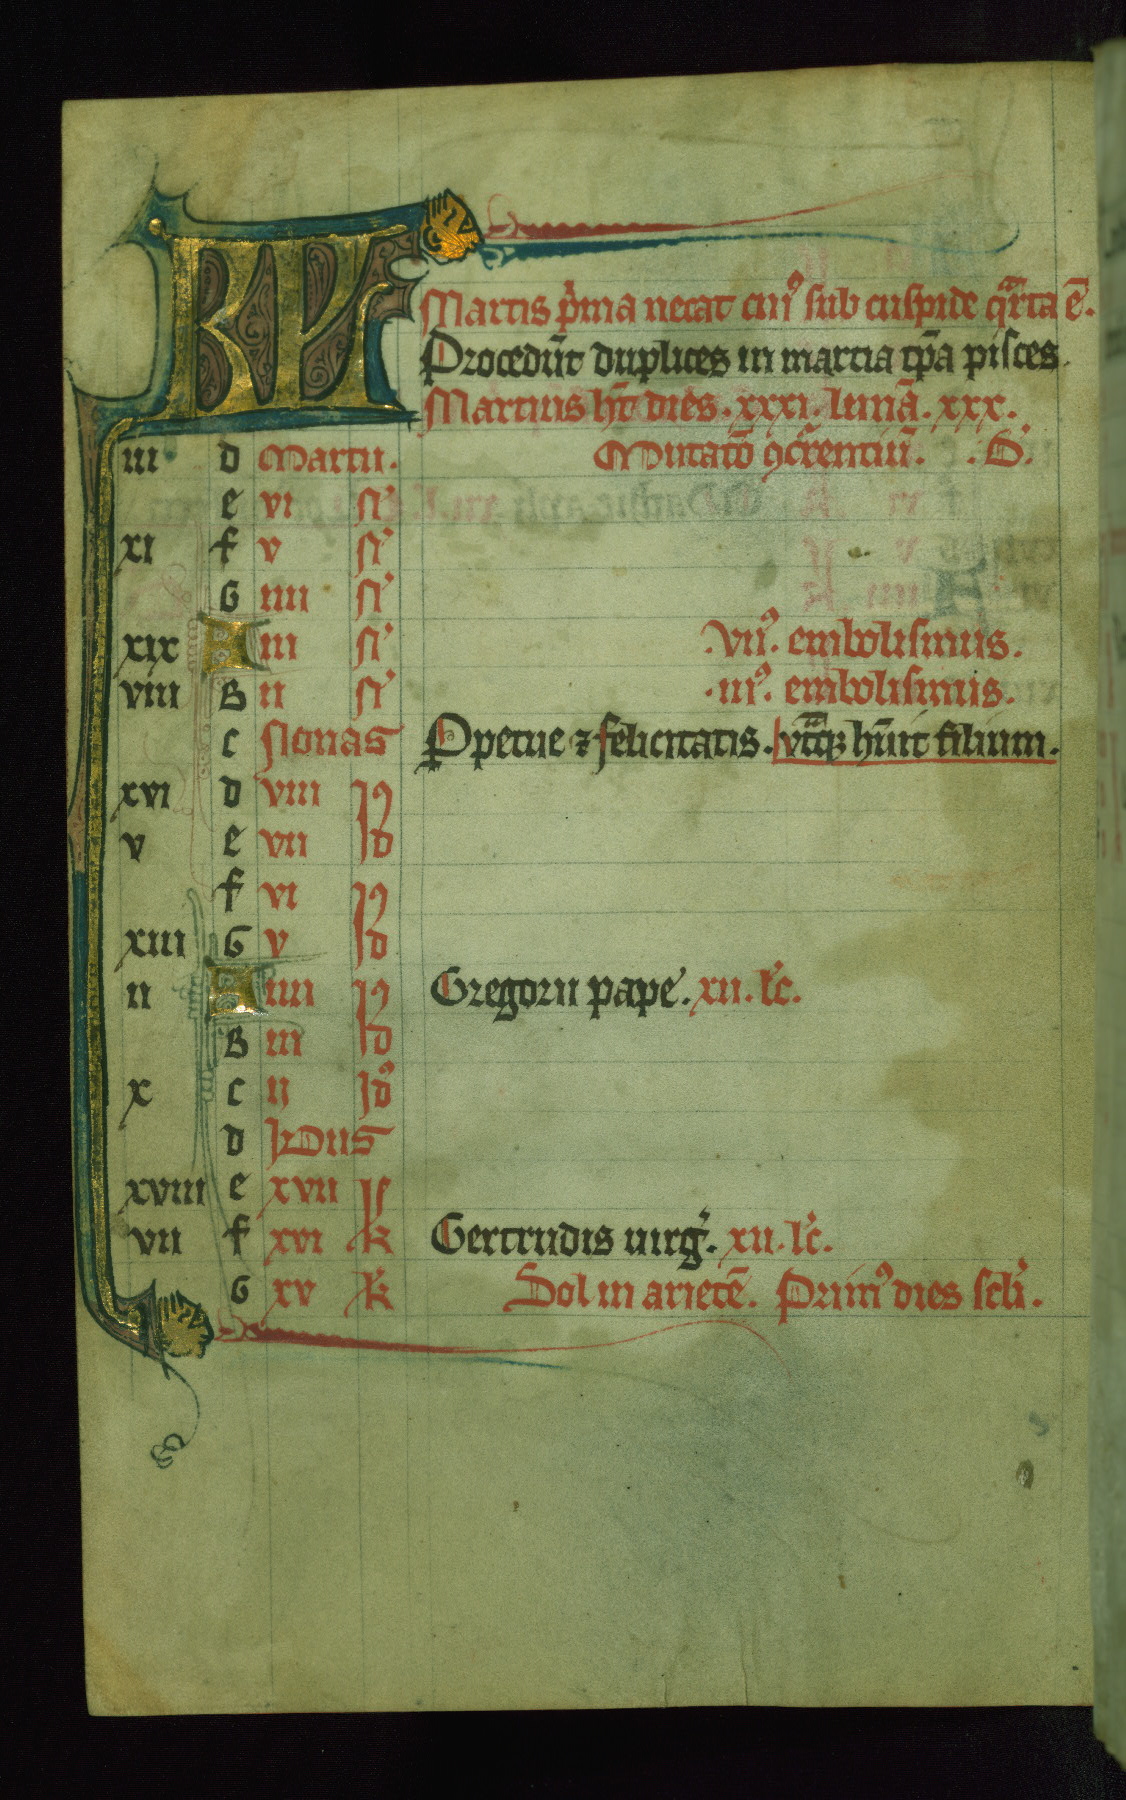 KL
Martis p̄ma necat cui᷒ sub cuspide q̄rta ē.
Procedūt duplices in martia tp̄a pisces.
Martius ht̄ dies. xxxi. lunā. xxx.
iii d Martii. Mutatō ɔcr̄rentiū. .G.
e vi N᷒
xi f v N᷒
G iiii N᷒
xix A iii N᷒ .vii᷒. embolismus.
viii B ii N᷒ .iii᷒. embolismus.
c Nonas Ꝑpetue ⁊ felicitatis. hūit filium.
xvi d viii Id
v e vii Id
f vi Id
xiii G v Id
ii A iiii Id Gregorii pape. xii. lc̄.
B iii Id
x c ii Id᷒
d Idus
xviii e xvii K
vii f xvi K Gertrudis uirḡ. xii. lc̄.
G xv K Sol in arietē. Prim᷒ dies scl̄i.